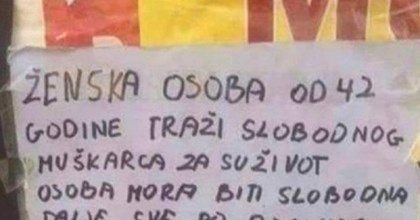 ŽENSKA OSOBA OD 42
GODINE TRAŽI SLOBODNOG
MUŠKARCA ZA SUŽIVOT
OSOBA MORA BITI SLOBODNA
DALJE SVE PO